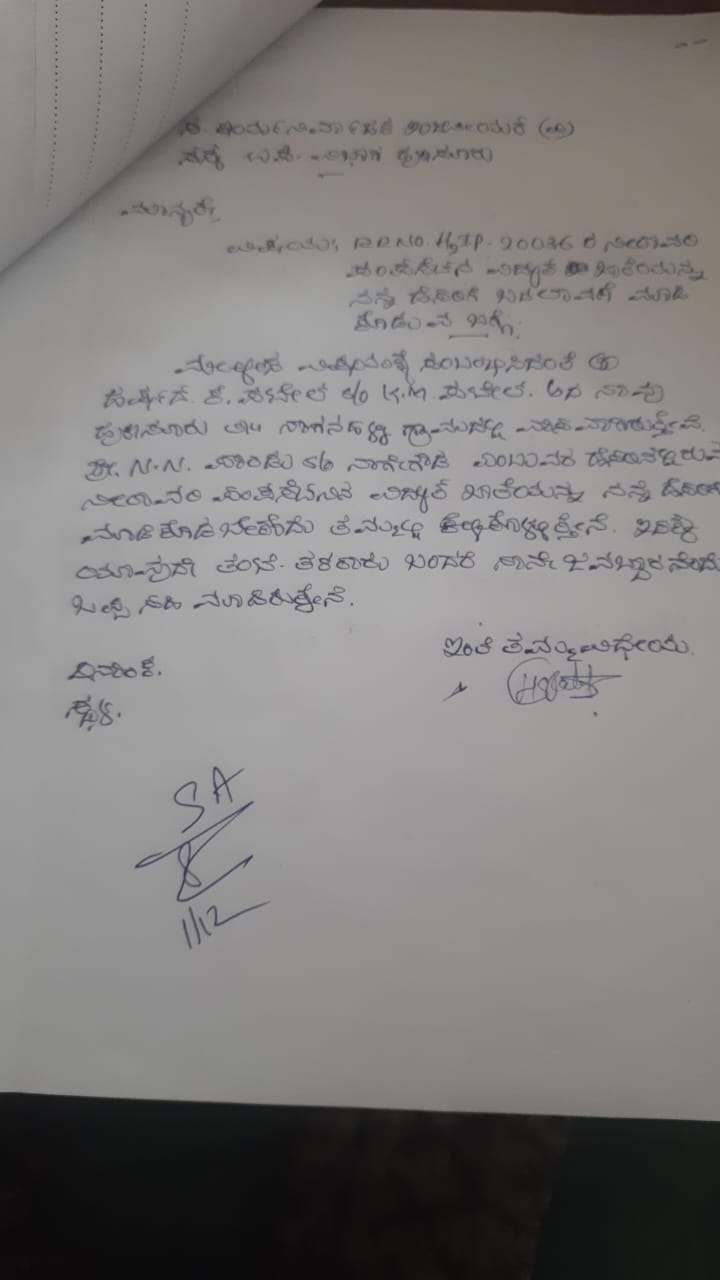 ಸ. ಕಾರ್ಯನಿರ್ವಾಹಕ ಇಂಜಿನಿಯರ್ (ವಿ)
ಉಪ ವಿಭಾಗ
ಮಾನ್ಯರೇ,
ವಿಷಯ: RR NO. 20036 ರ ನೀರಾವರಿ
ಪಂಪಸೆಟಿನ ವಿದ್ಯುತ್ ಖಾತೆಯನ್ನು
ನನ್ನ ಹೆಸರಿಗೆ ಬದಲಾವಣೆ ಮಾಡಿ
ಕೊಡುವ ಬಗ್ಗೆ.
ಮೇಲ್ಕಂಡ ವಿಷಯಕ್ಕೆ ಸಂಬಂಧಿಸಿದಂತೆ
ಕೆ. ಪಟೇಲ್ S/o K.M. ಪಟೇಲ್. ಆದ ನಾವು
ನಾಗನಹಳ್ಳಿ ಗ್ರಾಮದಲ್ಲಿ ವಾಸವಾಗಿರುತ್ತೇವೆ.
ಶ್ರೀ. N.N. S/o ನಾಗೇಗೌಡ ಎಂಬುವರ ಹೆಸರಿನಲ್ಲಿರುವ
ನೀರಾವರಿ ಪಂಪಸೆಟಿನ ವಿದ್ಯುತ್ ಖಾತೆಯನ್ನು ನನ್ನ ಹೆಸರಿಗೆ
ಮಾಡಿಕೊಡಬೇಕೆಂದು ತಮ್ಮಲ್ಲಿ ಕೇಳಿಕೊಳ್ಳುತ್ತೇನೆ. ಇದಕ್ಕೆ
ಯಾವುದೇ ತಂಟೆ-ತಕರಾರು ಬಂದರೆ ನಾನೇ ಜವಬ್ದಾರನೆಂದು
ಒಪ್ಪಿ ಸಹಿ ಮಾಡಿರುತ್ತೇನೆ.
ಇಂತಿ ತಮ್ಮ ವಿಧೇಯ.
ದಿನಾಂಕ.
ಸ್ಥಳ.
SA
1/12